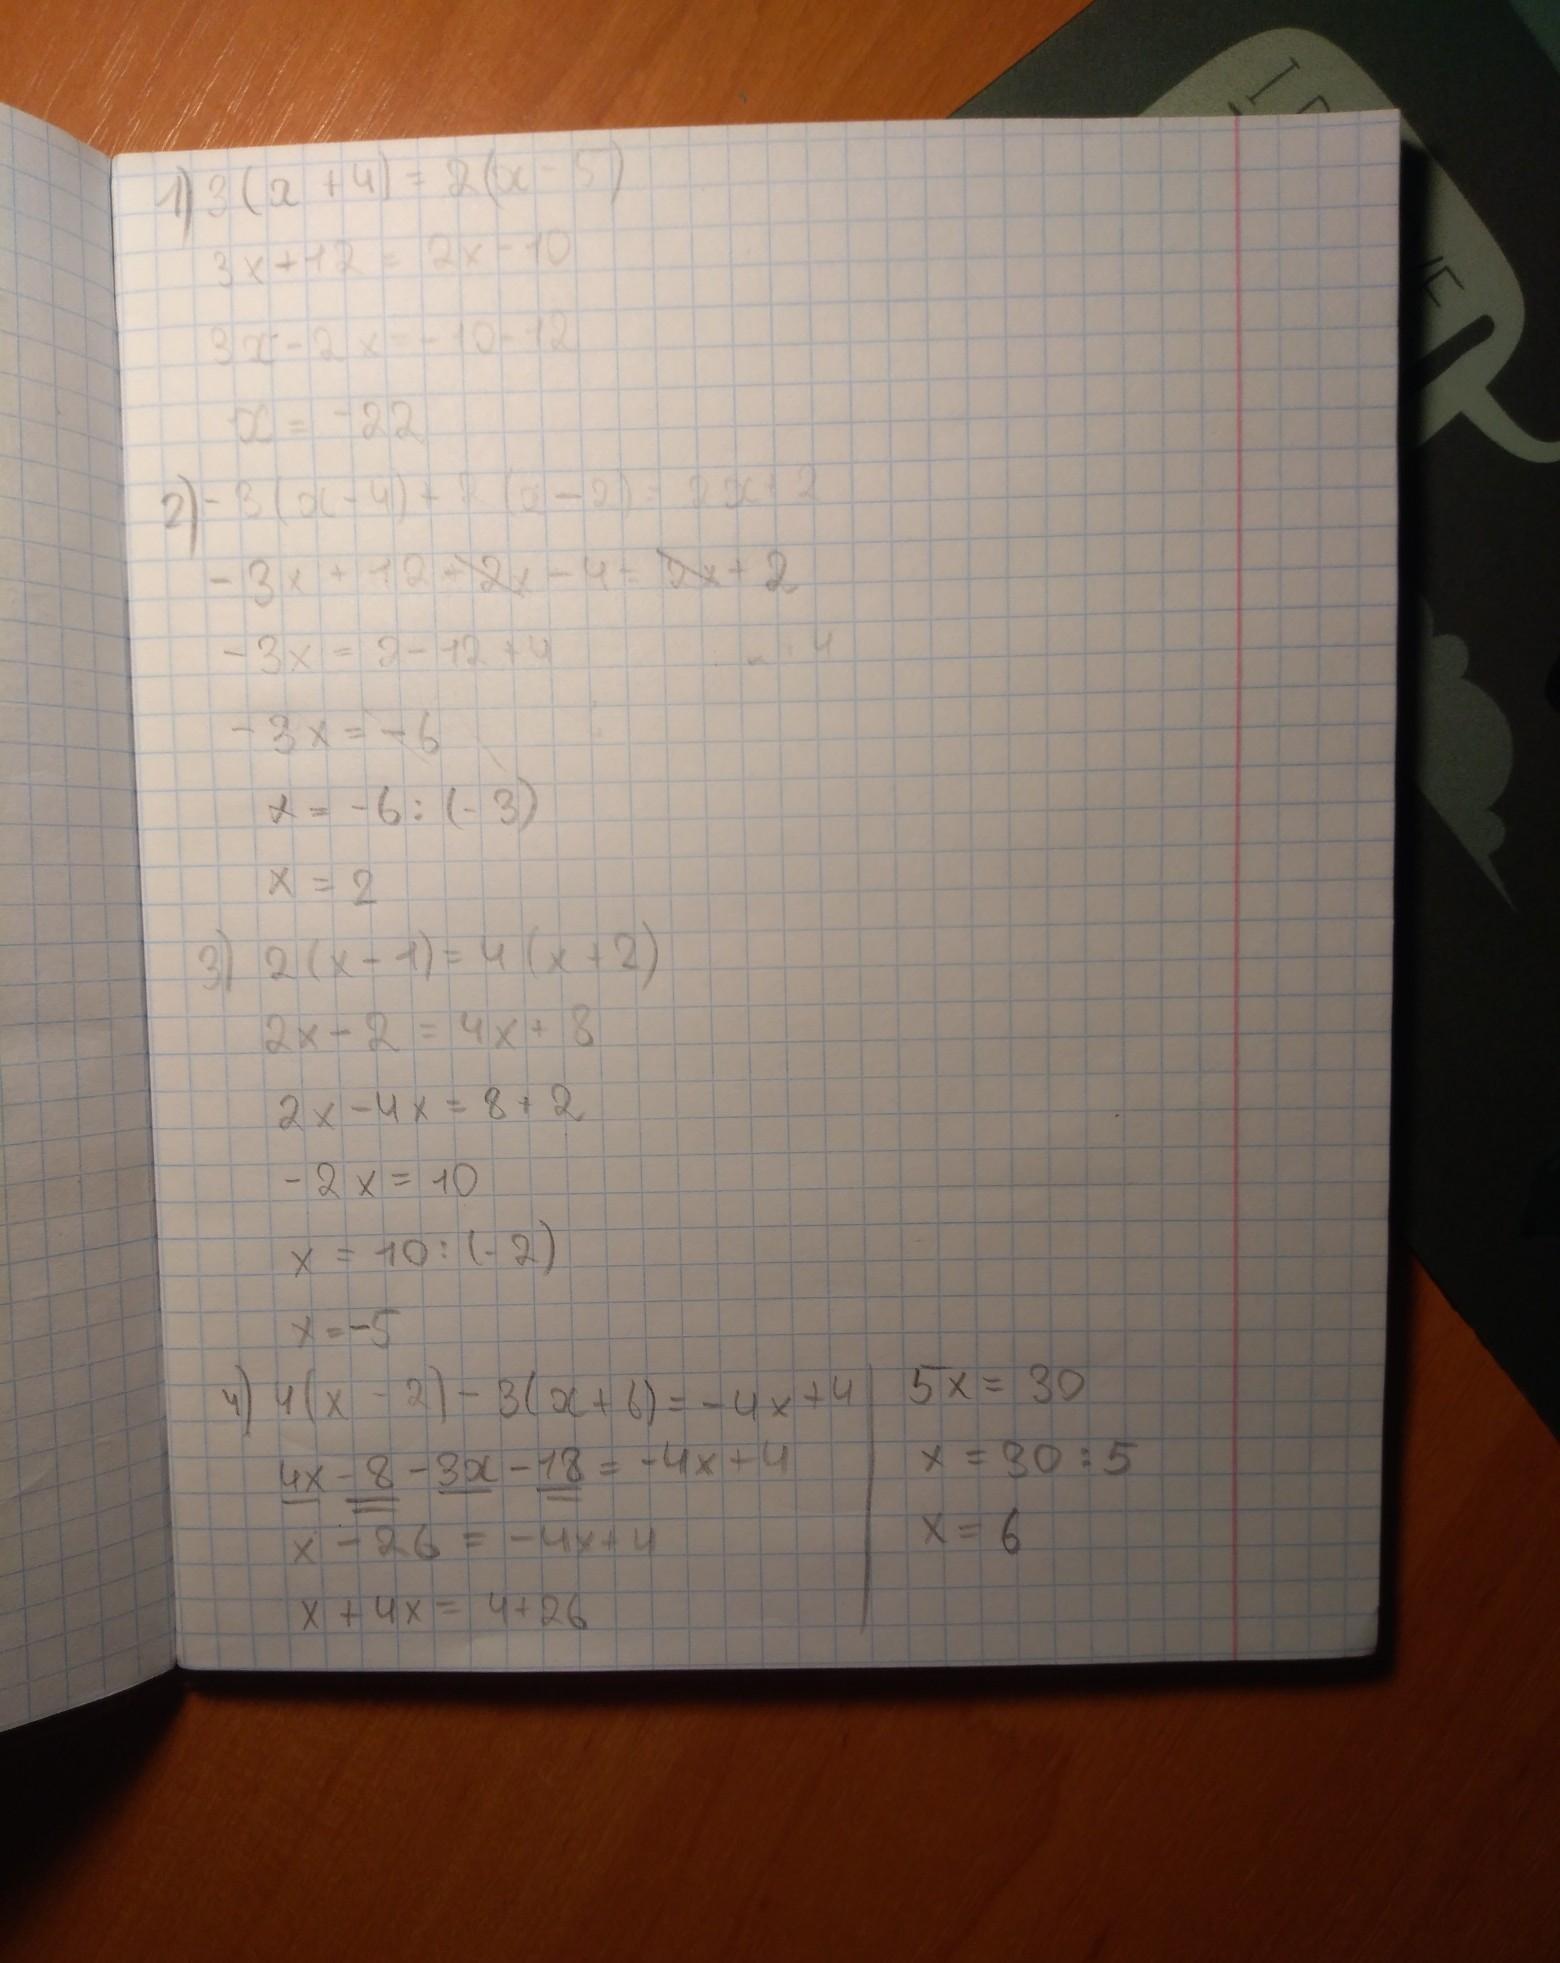 1) 3(x+4)=2(x-5)
3x+12=2x-10
3x-2x=-10-12
x=-22
2) -3(x-4)+2(x-2)=2x+2
-3x+12+2x-4=2x+2
-3x=2-12+4
-3x=-6
x=-6:(-3)
x=2
3) 2(x-1)=4(x+2)
2x-2=4x+8
2x-4x=8+2
-2x=10
x=10:(-2)
x=-5
4) 4(x-2)-3(x+6)=-4x+4
4x-8-3x-18=-4x+4
x-26=-4x+4
x+4x=4+26
5x=30
x=30:5
x=6